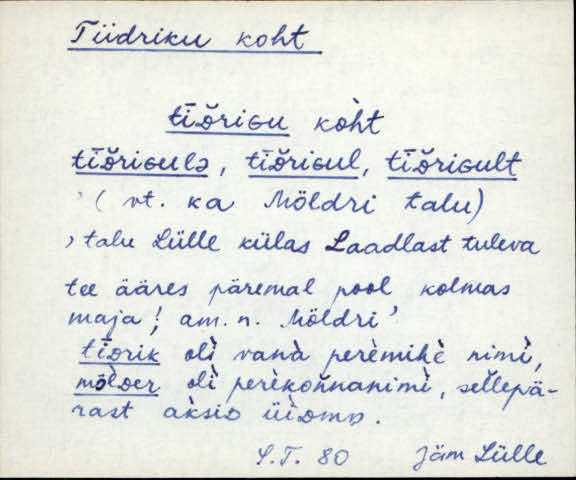 Tiidriku koht
tīᴅ̆riɢu kòht
tīᴅ̆riɢulə, tīᴅ̆riɢul, tīᴅ̆riɢult
(vt. ka Möldri talu)
, talu Lülle külas Laadlast tuleva
tee ääres päremal pool kolmas
maja!, am. n. Möldri'
tīᴅrik olì vanà perèmihè nimì,
mö̀lᴅer olì perèkoǹnanimì, sèllepä-
rast
S.T. 80 Jäm Lülle